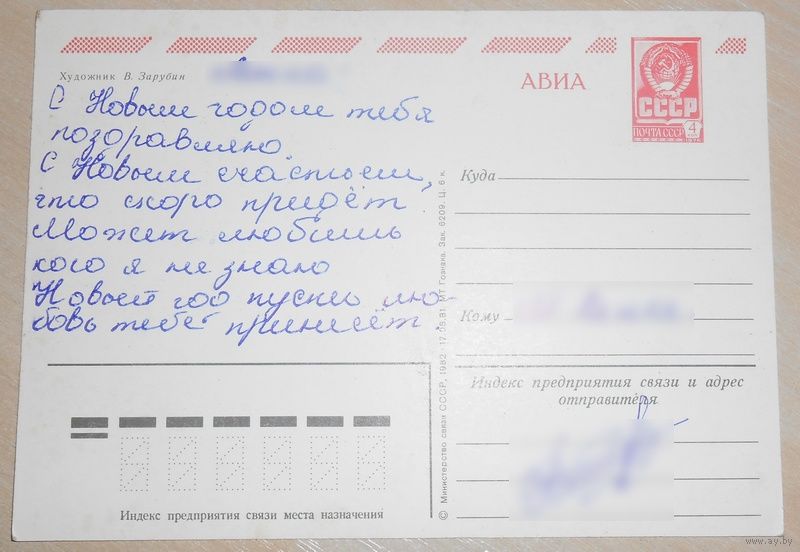 Художник В. Зарубин
АВИА
СССР
ПОЧТА СССР 4
С Новым годом тебя
поздравляю
С Новым счастьем,
что скоро придёт!
Может любишь
кого я не знаю
Новый год пусть лю-
бовь тебе принесёт.
Куда
Кому
Индекс предприятия связи и адрес
отправителя
Индекс предприятия связи места назначения
© Министерство связи СССР, 1982. 17.08.81. МТ Гознака. Зак. 6209. Ц. 6 к.
www.ay.by